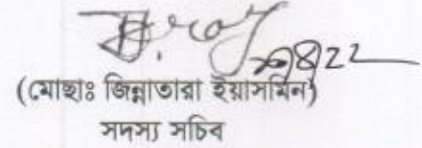 (মোছাঃ জিন্নাতারা ইয়াসমিন)
সদস্য সচিব